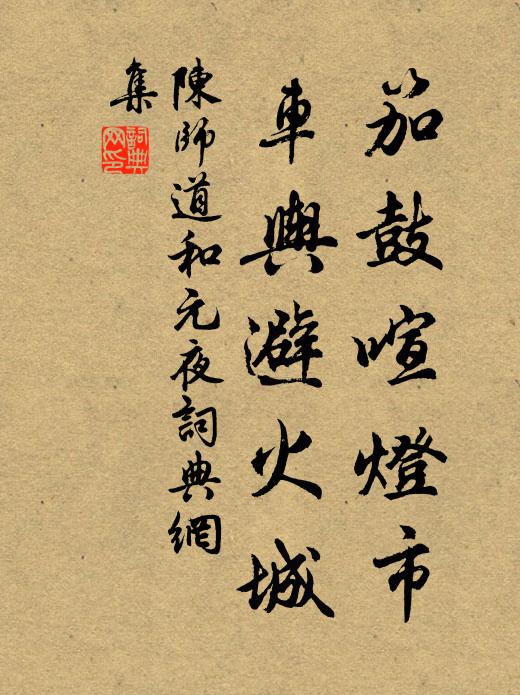 笳鼓喧燈市
車輿避火城
陳師道和元夜詞典網
集
詞典網印